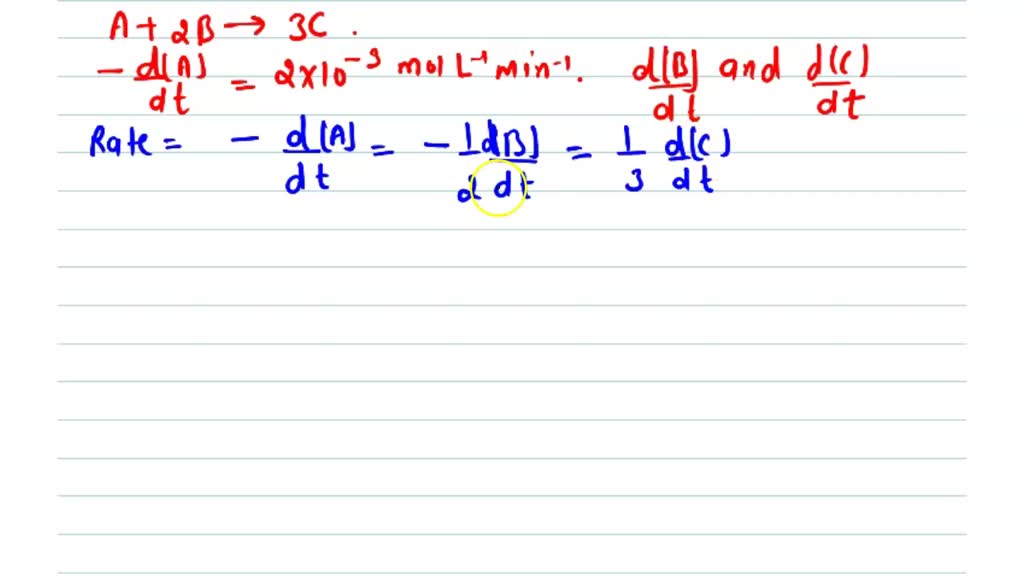 A + 2B → 3C .
- d[A]/dt = 2×10⁻³ mol L⁻¹ min⁻¹. d[B]/dt and d[C]/dt
Rate = - d[A]/dt = - 1/2 d[B]/dt = 1/3 d[C]/dt